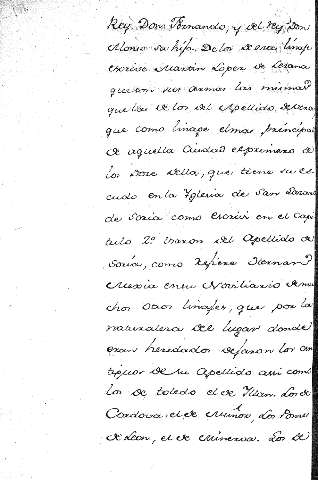 Rey Don Fernando, y del Rey Don
Alonso su hijo. De los de este linaje
escrive Martin Lopez de Lezana
que son sus armas las mismas
que las de los del Apellido de
que como linaje el mas principal
de aquella Ciudad es primero de
los Doze della, que tiene su es
cudo en la Yglesia de San
de Soria como escrivi en el Capi
tulo 2º del Apellido de
Soria, como refiere Hernan
Mexia en su Noviliario de mu
chos otros linajes, que por la
naturaleza del lugar donde
eran heredados dejaron los an
tiguos de su Apellido assi como
los de toledo el de Illan. Los de
Cordova el de Muñoz, Los Ponce
de Leon, el de Minerva. Los de